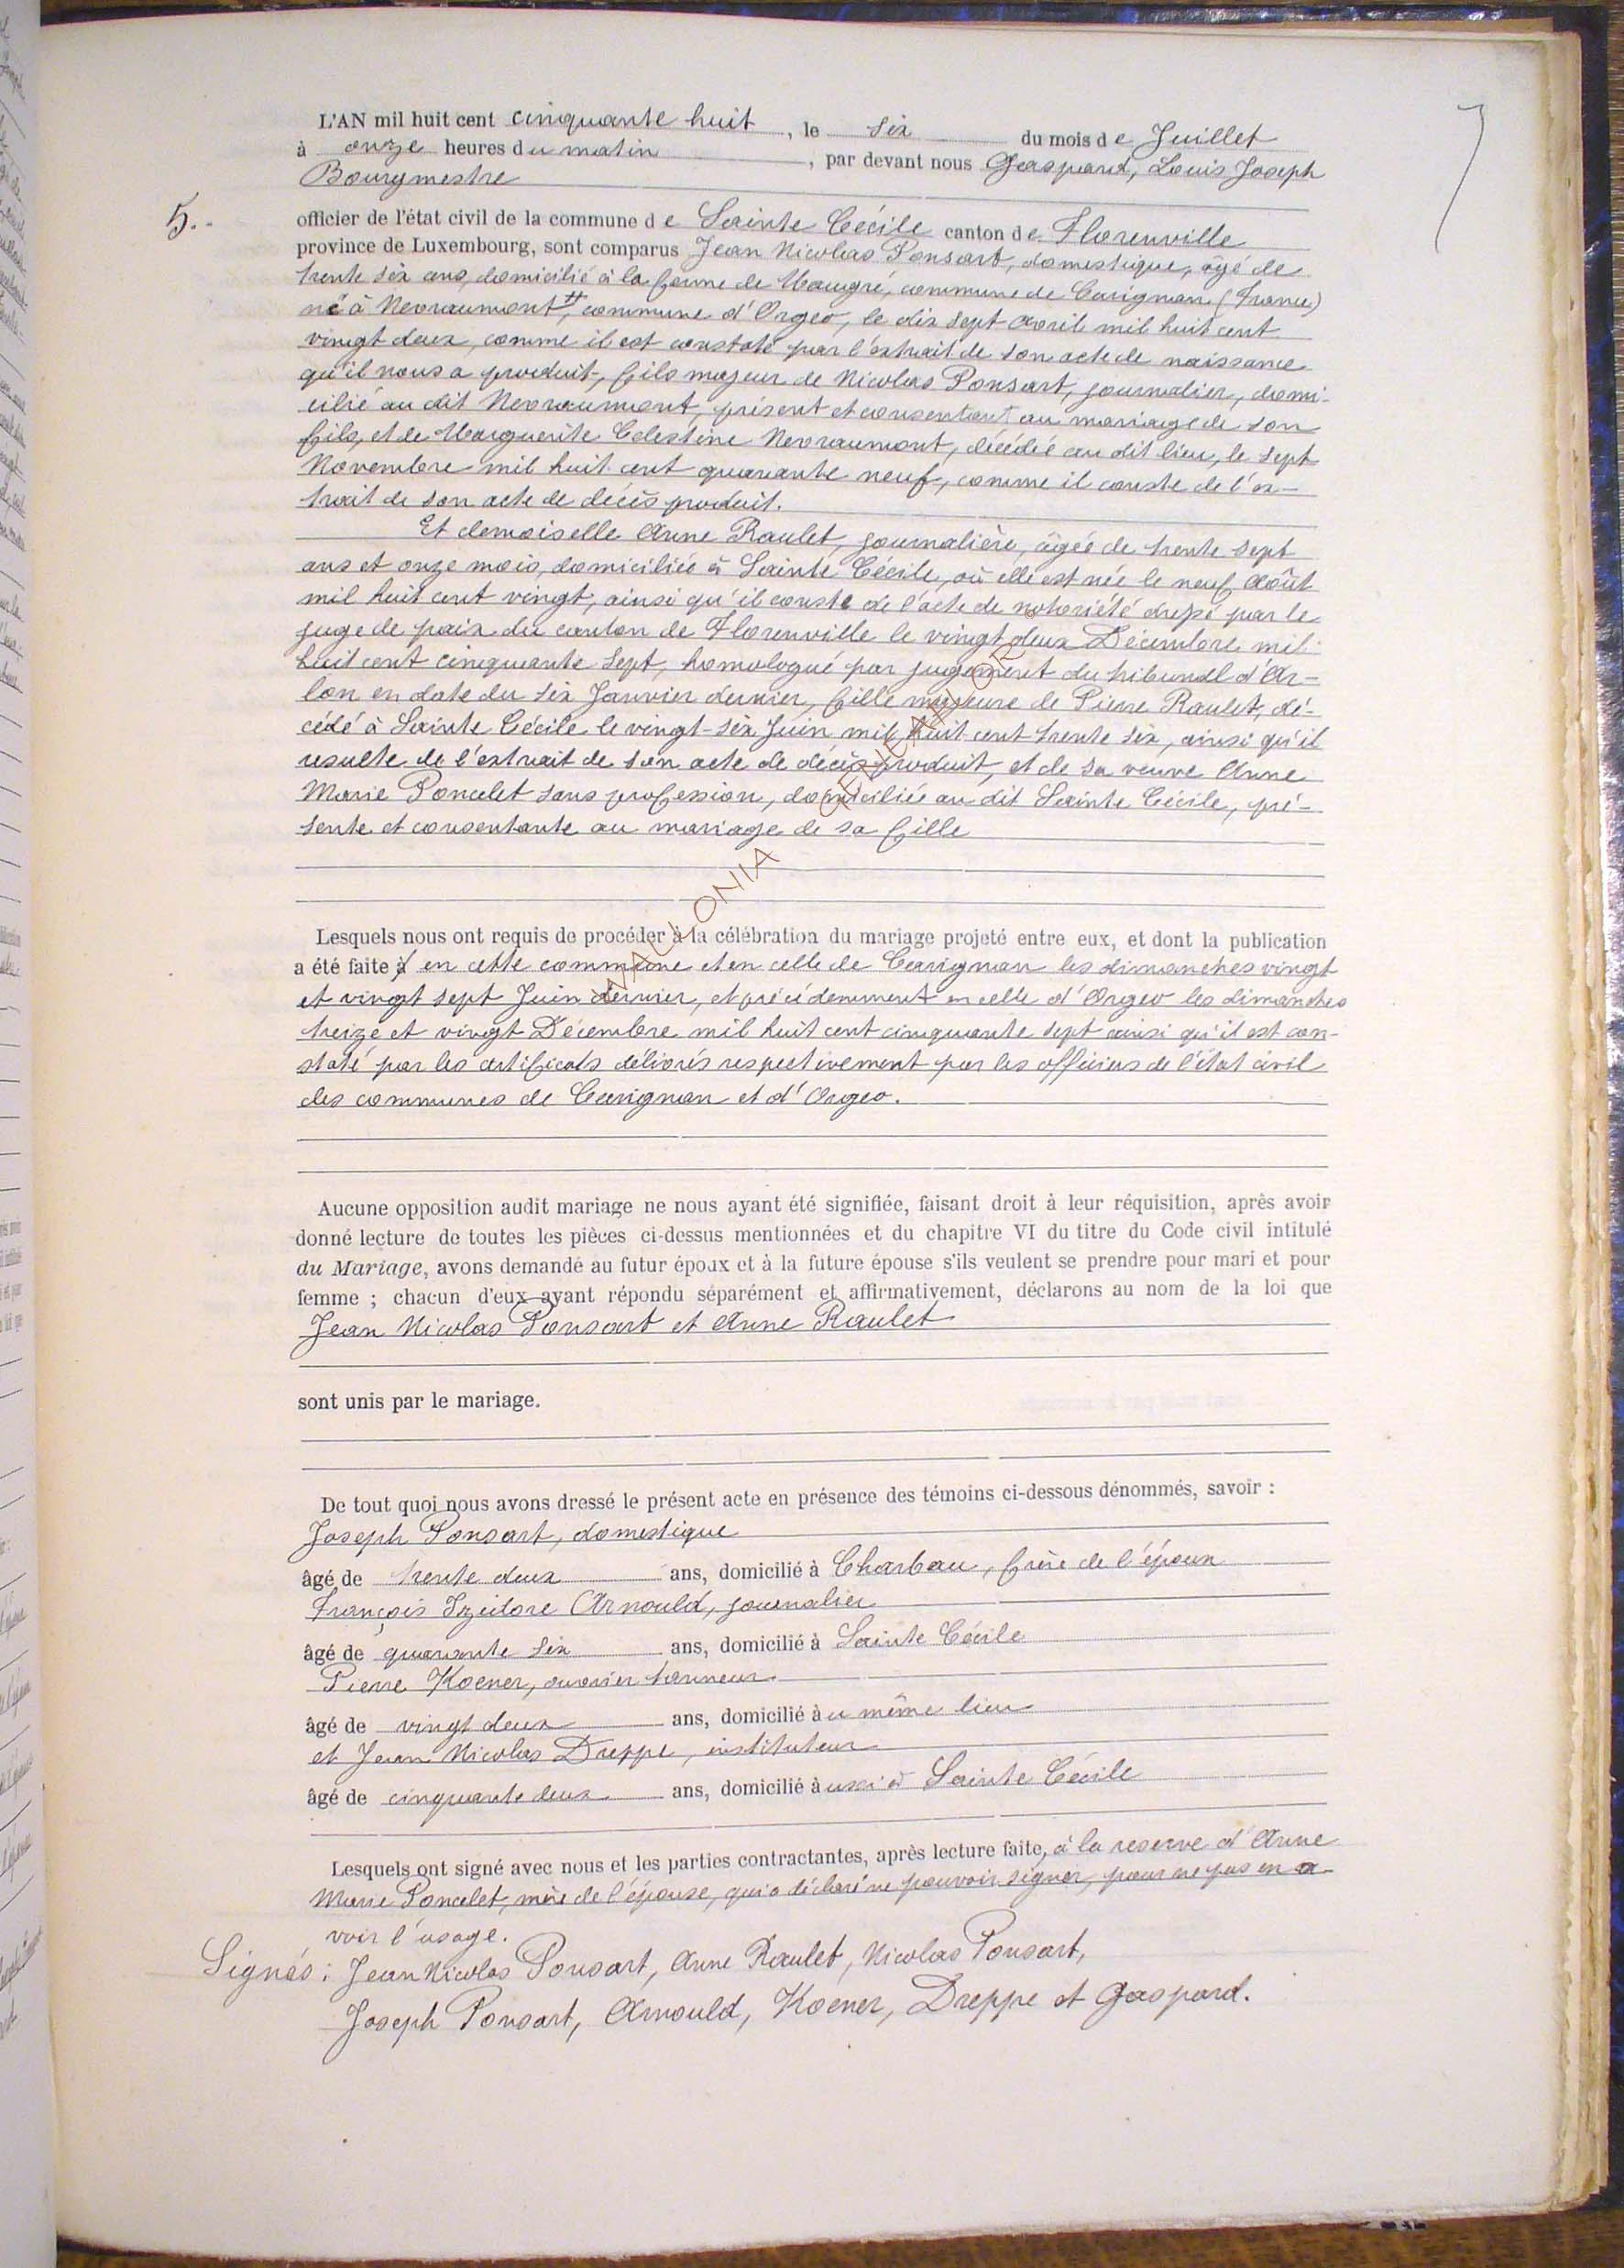 7
L'AN mil huit cent cinquante huit, le six du mois de Juillet
à onze heures du matin, par devant nous Gaspard, Louis Joseph
Bourgmestre
5.-
officier de l'état civil de la commune de Sainte Cécile canton de Florenville
province de Luxembourg, sont comparus Jean Nicolas Ponsart, domestique, âgé de
trente six ans, domicilié à la ferme de Maugré, commune de Carignan (France)
né à Nevraumont, commune d'Orgeo, le dix sept avril mil huit cent
vingt deux, comme il est constaté par l'extrait de son acte de naissance
qu'il nous a produit, fils majeur de Nicolas Ponsart, journalier, domi-
cilié au dit Nevraumont, présent et consentant au mariage de son
fils, et de Marguerite Celestine Nevraumont, décédée au dit lieu, le sept
Novembre mil huit cent quarante neuf, comme il conste de l'ex-
trait de son acte de décès produit.
Et demoiselle Anne Raulet, journalière, âgée de trente sept
ans et onze mois, domiciliée à Sainte Cécile, où elle est née le neuf Août
mil huit cent vingt, ainsi qu'il conste de l'acte de notoriété dressé par le
juge de paix du canton de Florenville le vingt deux Décembre mil
huit cent cinquante sept, homologué par jugement du tribunal d'Ar-
lon en date du six Janvier dernier, fille majeure de Pierre Raulet, dé-
cédé à Sainte Cécile le vingt-six Juin mil huit cent trente six, ainsi qu'il
resulte de l'extrait de son acte de décès produit, et de sa veuve Anne
Marie Poncelet sans profession, domiciliée au dit Sainte Cécile, pré-
sente et consentante au mariage de sa fille
WALLONIA GENEALOR
Lesquels nous ont requis de procéder à la célébration du mariage projeté entre eux, et dont la publication
a été faite à en cette commune et en celle de Carignan les dimanches vingt
et vingt sept Juin dernier, et précédemment en celle d'Orgeo les dimanches
treize et vingt Décembre mil huit cent cinquante sept ainsi qu'il est con-
staté par les certificats délivrés respectivement par les officiers de l'état civil
des communes de Carignan et d'Orgeo.
Aucune opposition audit mariage ne nous ayant été signifiée, faisant droit à leur réquisition, après avoir
donné lecture de toutes les pièces ci-dessus mentionnées et du chapitre VI du titre du Code civil intitulé
du Mariage, avons demandé au futur époux et à la future épouse s'ils veulent se prendre pour mari et pour
femme ; chacun d'eux ayant répondu séparément et affirmativement, déclarons au nom de la loi que
Jean Nicolas Ponsart et Anne Raulet
sont unis par le mariage.
De tout quoi nous avons dressé le présent acte en présence des témoins ci-dessous dénommés, savoir :
Joseph Ponsart, domestique
âgé de trente deux ans, domicilié à Charbau, frère de l'époux
François Izidore Arnould, journalier
âgé de quarante six ans, domicilié à Sainte Cécile
Pierre Koener, ouvrier tanneur
âgé de vingt deux ans, domicilié àu même lieu
et Jean Nicolas Dreppe, instituteur
âgé de cinquante deux ans, domicilié àussi à Sainte Cécile
Lesquels ont signé avec nous et les parties contractantes, après lecture faite, à la reserve d'Anne
Marie Poncelet, mère de l'épouse, qui a déclaré ne pouvoir signer, pour ne pas en a-
voir l'usage.
Signés : Jean Nicolas Ponsart, Anne Raulet, Nicolas Ponsart,
Joseph Ponsart, Arnould, Koener, Dreppe et Gaspard.